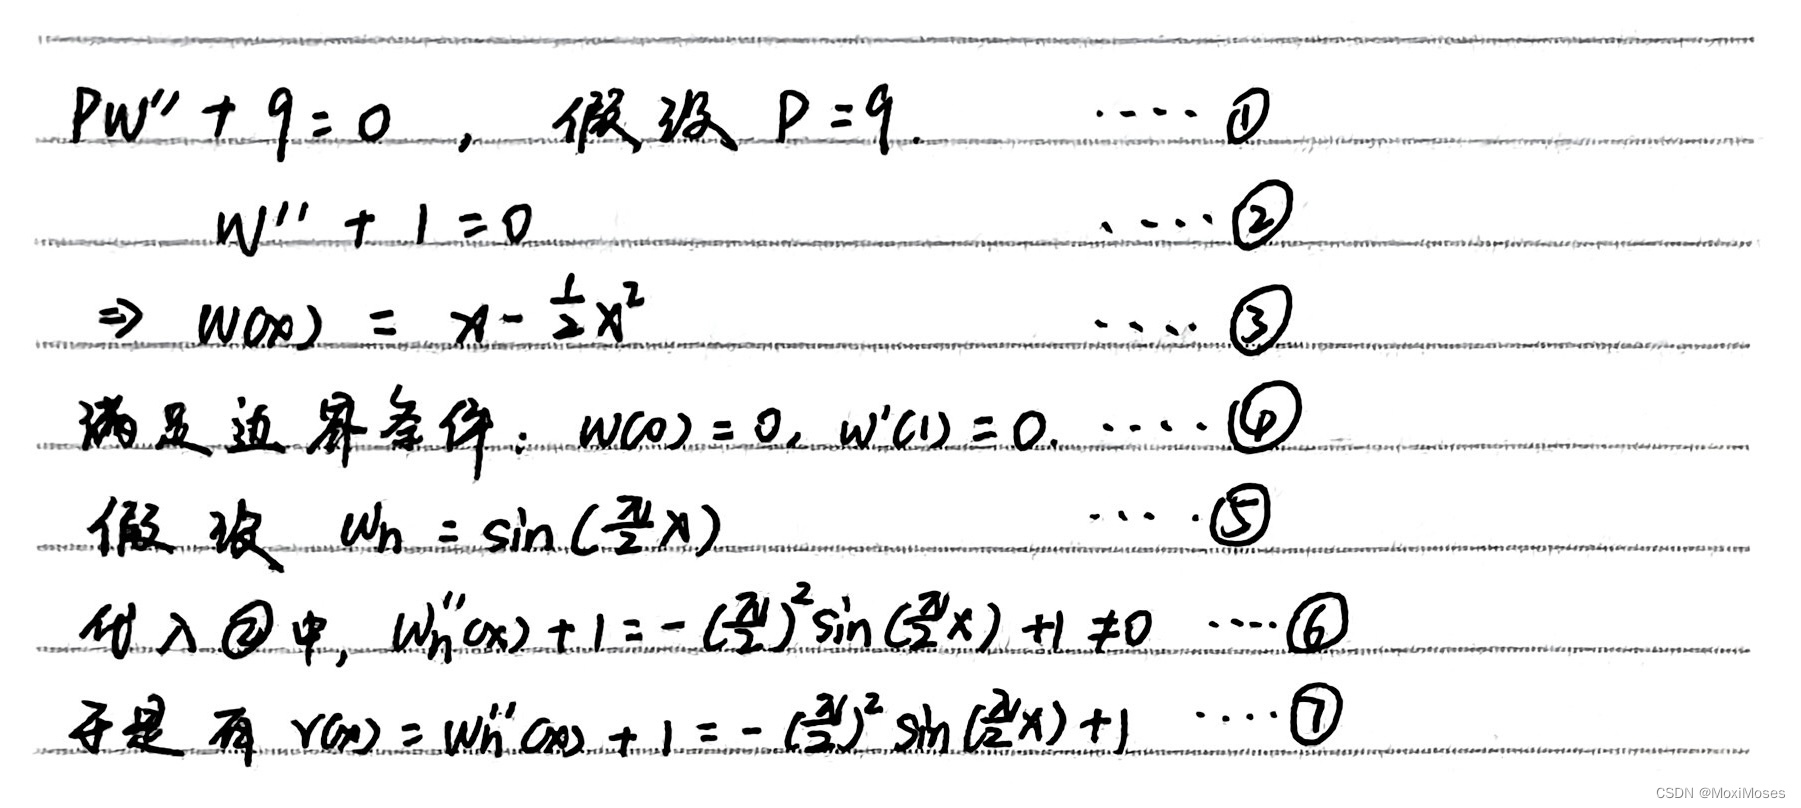 PW'' + q = 0 , 假设 P = q. ···· ①
W'' + 1 = 0 ···· ②
⇒ W(x) = x - 1/2 x² ···· ③
满足边界条件: W(0) = 0, W'(1) = 0. ···· ④
假设 Wn = sin(π/2 x) ···· ⑤
代入②中, Wn''(x) + 1 = -(π/2)² sin(π/2 x) + 1 ≠ 0 ···· ⑥
于是有 r(x) = Wn''(x) + 1 = -(π/2)² sin(π/2 x) + 1 ···· ⑦
CSDN @MoxiMoses